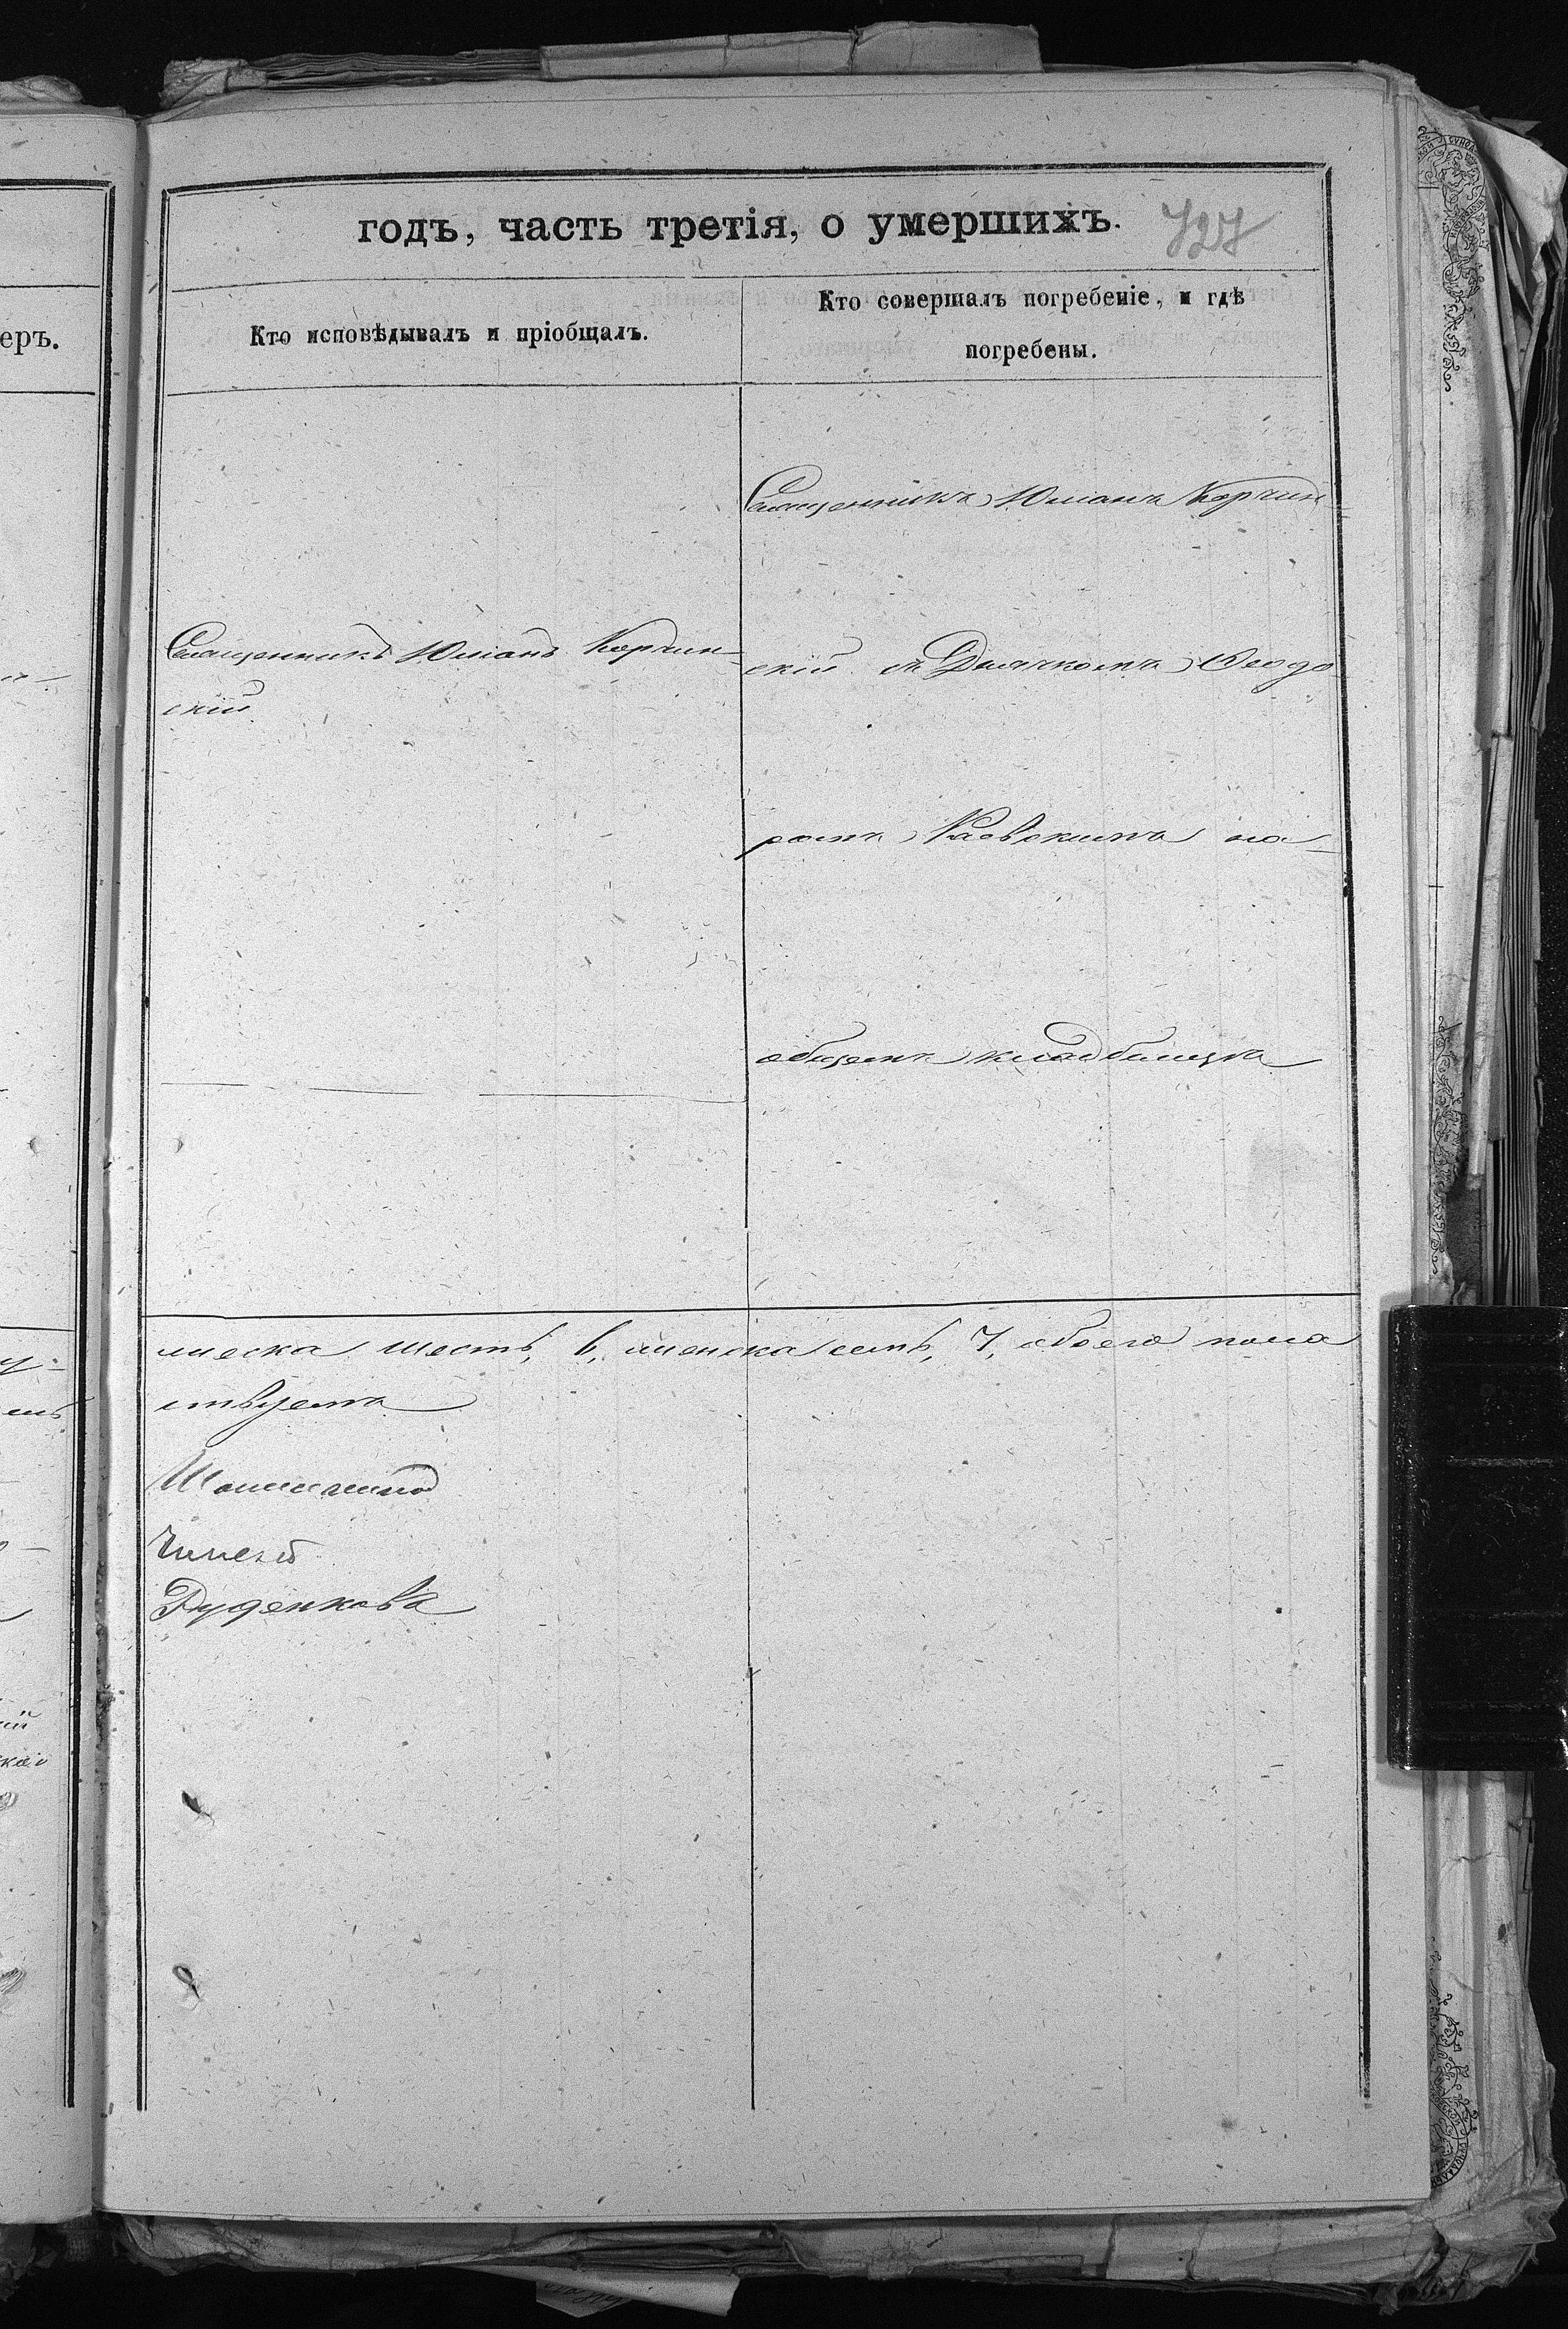 годъ, часть третія, о умершихъ. 727
Кто исповѣдывалъ и пріобщалъ.
Кто совершалъ погребеніе, и гдѣ
погребены.
Священникъ Юліанъ Корчин-
скій
Священникъ Юліанъ Корчин-
скій съ Дьячкомъ Ѳеодо
ромъ Раевскимъ на-
общемъ кладбищѣ
жеска шесть, 6, женска семь, 7, обоего пола
ствуемъ
Руденкова
еръ.